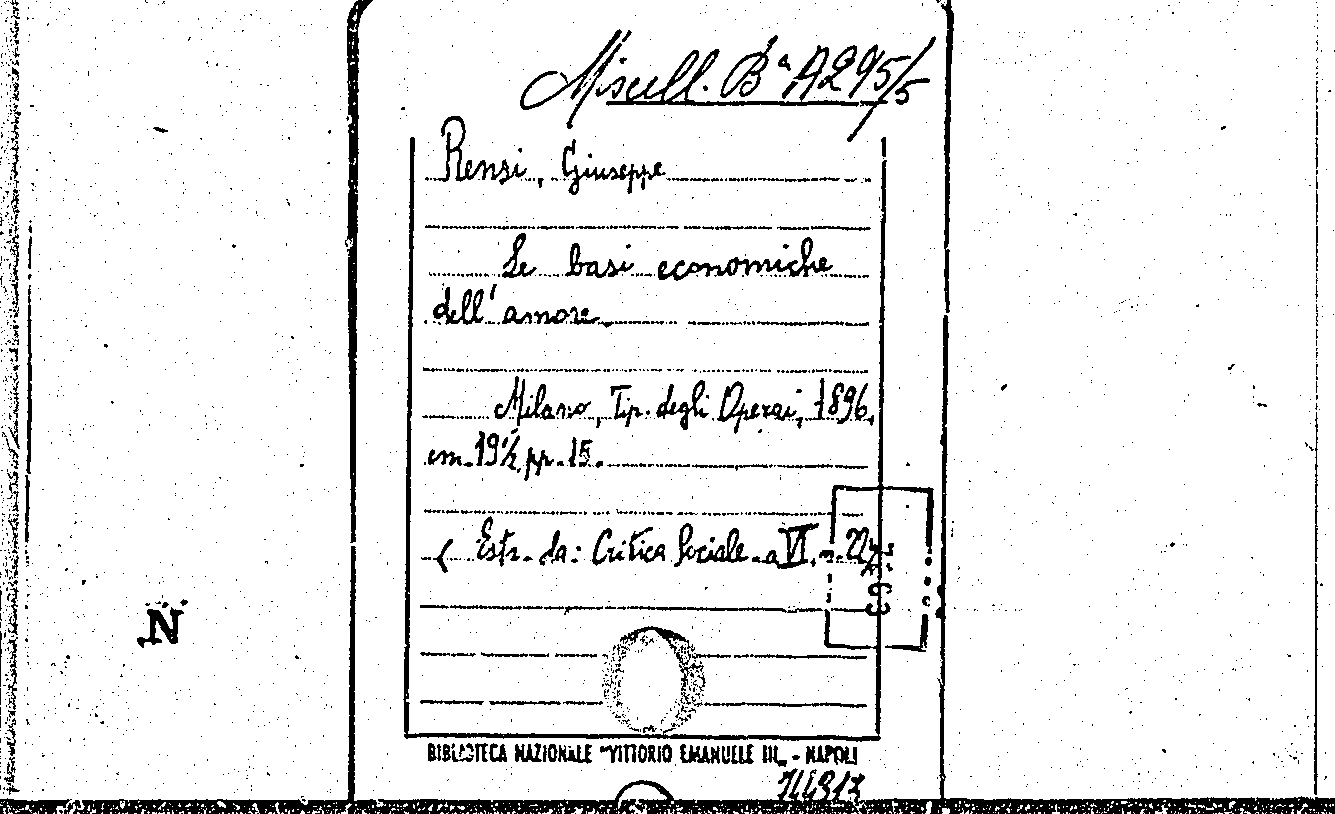 Miscell. Bª A295/5
Rensi, Giuseppe
Le basi economiche
dell'amore.
Milano, Tip. degli Operai, 1896.
cm. 19½ pp. 15.
( Estr. da: Critica Sociale. a VI. n. 22
N
BIBLIOTECA NAZIONALE "VITTORIO EMANUELE III„ - NAPOLI